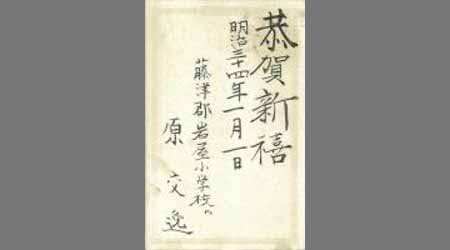 恭賀新禧
明治三十四年一月一日
藤津郡岩屋小学校内
原交逸